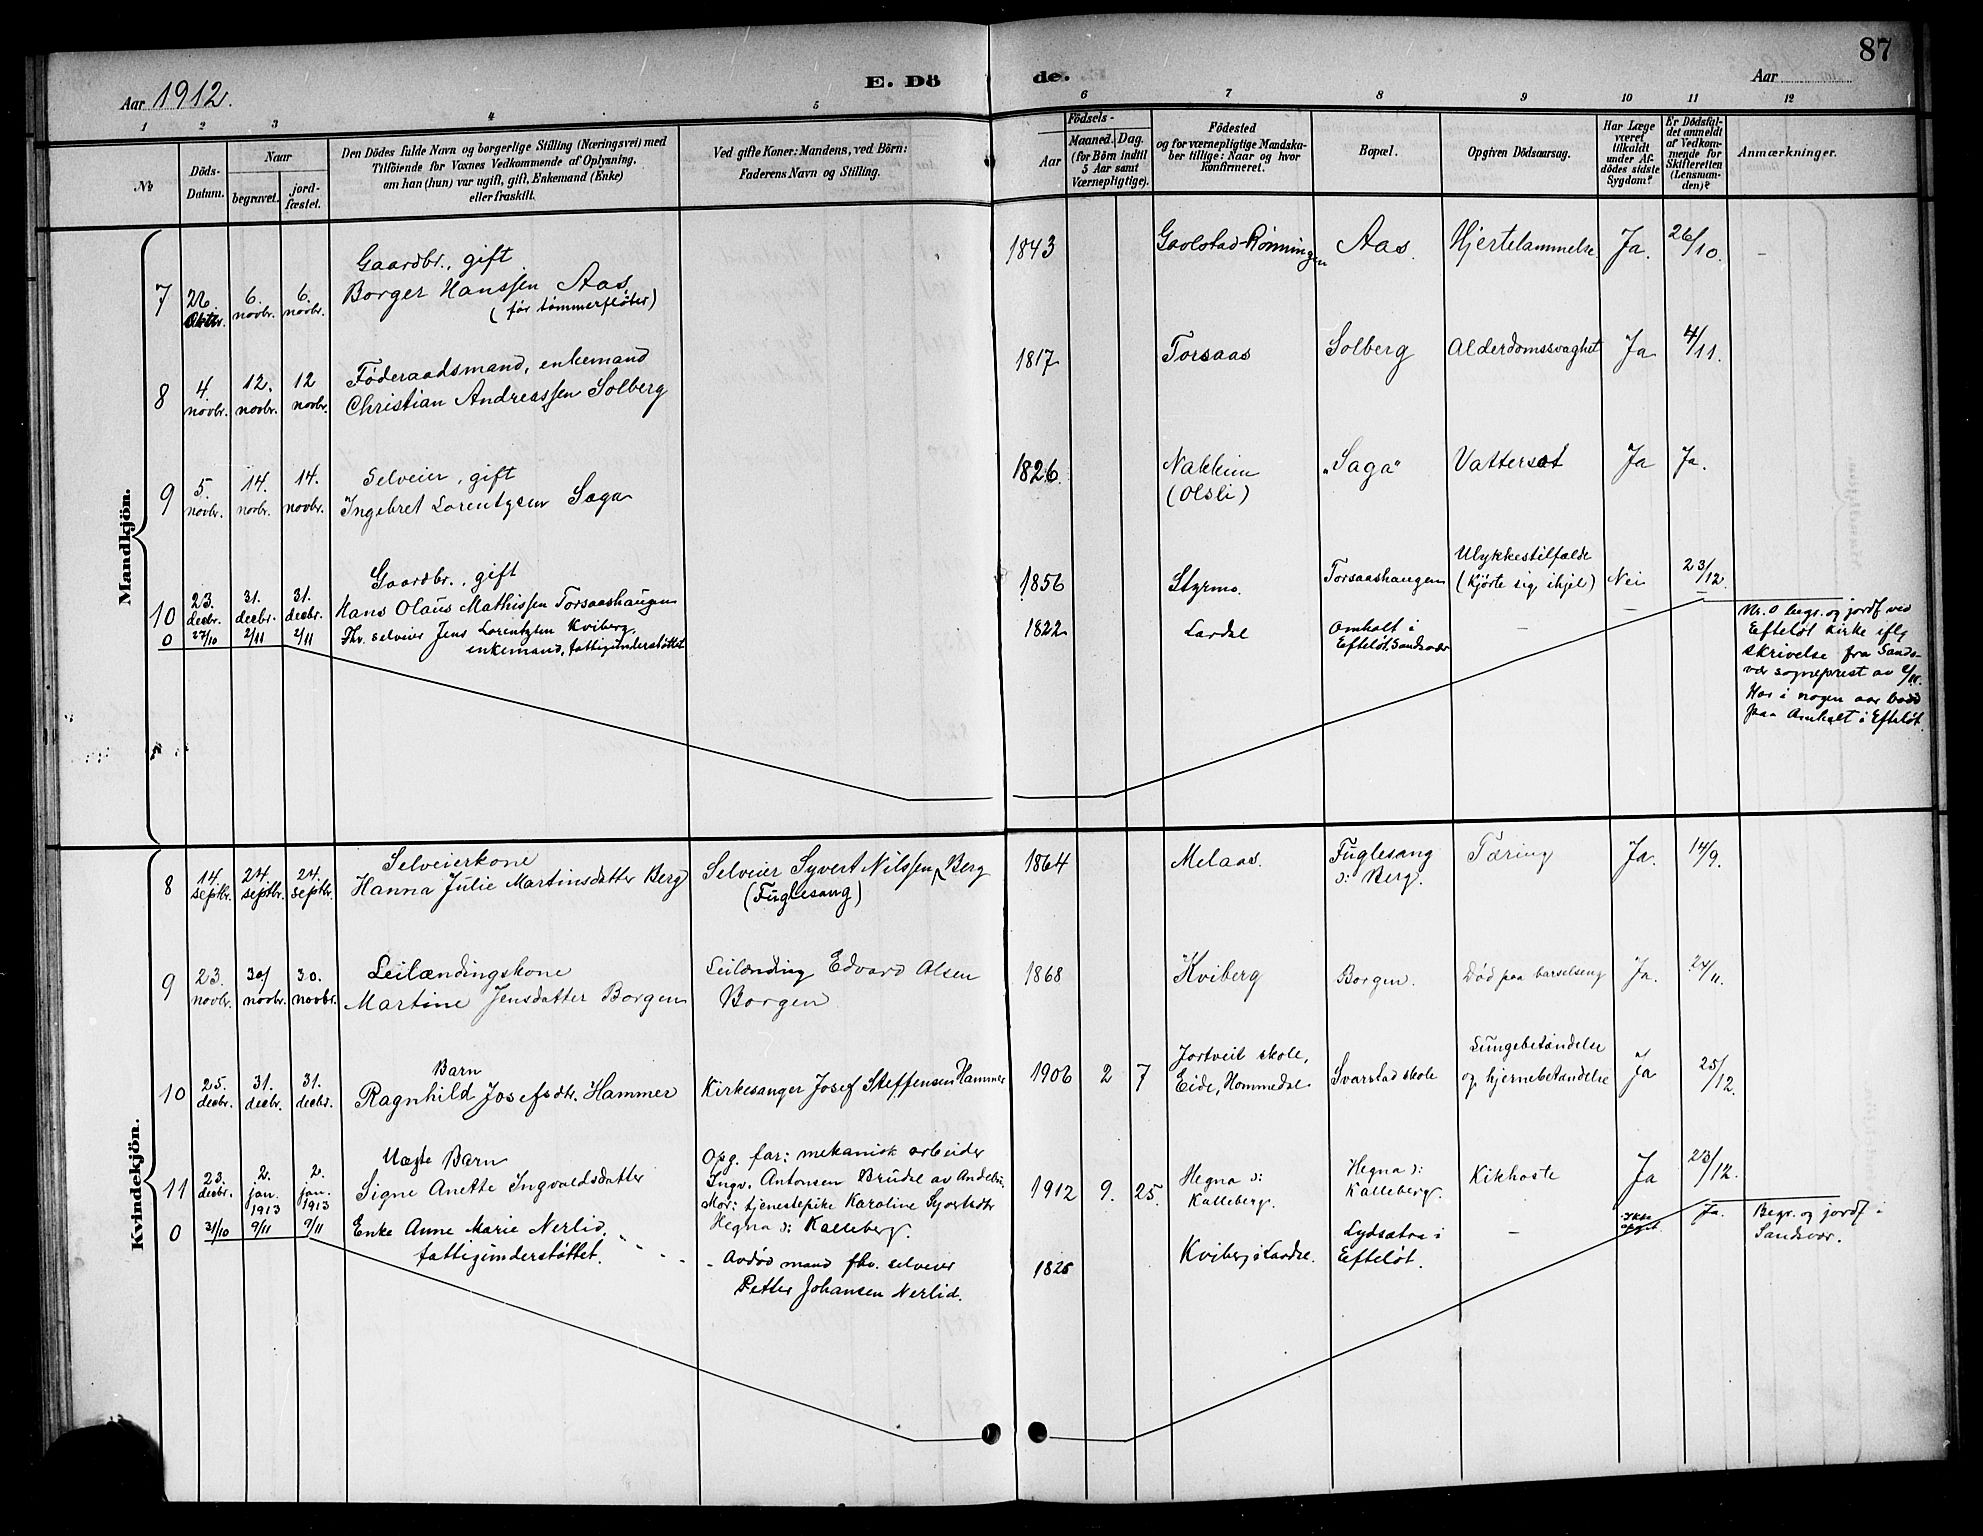 87
Aar 1912.
E. Dö
de.
Aar
1 2 3 4 5 6 7 8 9 10 11 12
No
Döds-
Datum.
Naar
begravet.
jord-
fæstet.
Den Dödes fulde Navn og borgerlige Stilling (Næringsvei) med
Tilföiende for Voxnes Vedkommende af Oplysning,
om han (hun) var ugift, gift, Enkemand (Enke)
eller fraskilt.
Ved gifte Koner: Mandens, ved Börn:
Faderens Navn og Stilling.
Födsels-
Aar
Maaned. Dag.
(for Börn indtil
5 Aar samt
Værnepligtige).
Födested
og for værnepligtige Mandska-
ber tillige: Naar og hvor
konfirmeret.
Bopæl.
Opgiven Dödsaarsag.
Har Læge
været
tilkaldt
under Af-
dödes sidste
Sygdom?
Er Dödsfal-
det anmeldt
af Vedkom-
mende for
Skifteretten
(Lensman-
den)?
Anmærkninger.
Mandkjön.
7
26. Oktbr.
6. novbr.
6. novbr.
Gaardbr., gift
Borger Hanssen Aas
(før tømmerfløter)
1843
Gaolstad-Rønningen
Aas.
Hjertelammelse
Ja.
26/10.
8
4. novbr.
12. novbr.
12 novbr.
Føderaadsmand, enkemand
Christian Andreassen Solberg
1817
Torsaas
Solberg
Alderdomssvaghet
Ja
4/11.
9
5. novbr.
14. novbr.
14. novbr.
Selveier, gift
Ingebret Lorentzen Saga
1826
Nakkim
(Olsli)
"Saga"
Vattersot
Ja
Ja.
10
23. decbr.
31. decbr.
31. decbr.
Gaardbr., gift
Hans Olaus Mathissen Torsaashaugen
1856
Styrmo.
Torsaashaugen
Ulykkestilfælde
(kjørte sig ihjel)
Nei
23/12.
0
27/10
2/11
2/11
Fhv. selveier Jens Lorentzen Kviberg.
enkemand, fattigunderstøttet
1822
Lardal
Omholt i
Efteløt, Sandsvær
–
–
–
Nr. 0 begr. og jordf ved
Efteløt kirke iflg
skrivelse fra Sands-
vær sogneprest av 2/11.
Har i nogen aar bodd
paa Omholt i Efteløt.
Kvindekjön.
8
14. septbr.
24. septbr.
24. septbr.
Selveierkone
Hanna Julie Martinsdatter Berg
Selveier Syvert Nilssen Berg
(Fuglesang)
1864
Melaas.
Fuglesang
ɔ: Berg.
Tæring
Ja.
14/9.
9
23. novbr.
30/ novbr.
30. novbr.
Leilændingskone
Martine Jensdatter Borgen
Leilænding Edvard Olsen
Borgen
1868
Kviberg
Borgen.
Død paa barselseng
Ja.
24/11.
10
25. decbr.
31. decbr.
31. decbr.
Barn
Ragnhild Josefsdtr. Hammer
Kirkesanger Josef Steffensen Hammer
1906 2 7
Jortveit skole,
Eide, Hommedal
Svarstad skole
Lungebetændelse
og hjernebetændelse
Ja
25/12.
11
23. decbr.
2. jan. 1913
2. jan. 1913
Uægte Barn
Signe Anette Ingvaldsdatter
Opg. far: mekanisk arbeider
Ingv. Antonsen Brudal av Andebu
Mor: tjenestepike Karoline Syvertsdtr
Hegna ɔ: Kalleberg.
1912 9. 25.
Hegna ɔ:
Kalleberg.
Hegna ɔ:
Kalleberg.
Kikhoste
Ja
23/12.
0
31/10
9/11
9/11
Enke Anne Marie Nerlid.
fattigunderstøttet.
Avdød mand fhv. selveier
Petter Johansen Nerlid.
1825
Kviberg i Lardal.
Lydsætra i
Efteløt.
–
Ikke
opgit
Ja.
Begr. og jordf i
Sandsvær.